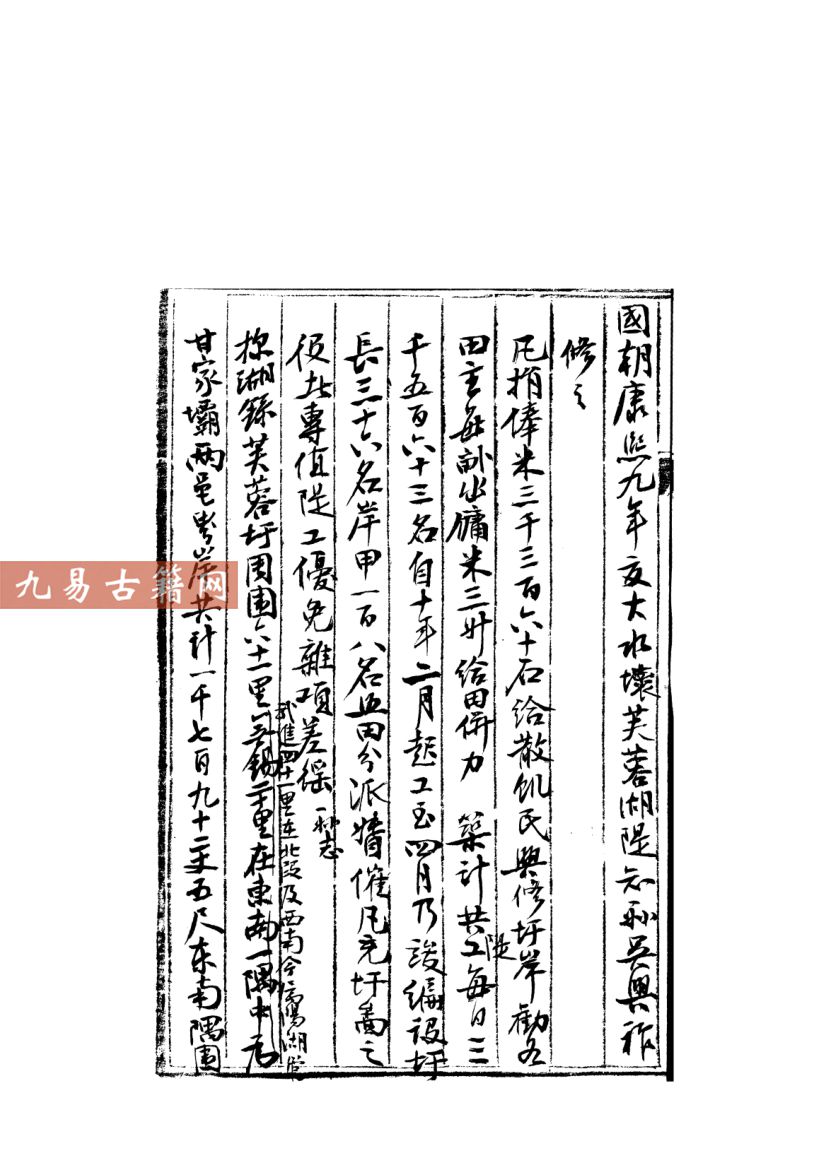 國朝康熙九年夏大水壞芙蓉湖隄知縣吳興祚
修之
凡捐俸米三千三百六十石給散飢民興修圩岸勸各
田主每畝出餹米三升給田併力 築計共工每日三
隄
千五百六十三名自十年二月起工至四月乃竣編設圩
長三十六名岸甲一百八名照田分派嬙催凡充圩啚之
役北專值隄工優免雜項差徭
一縣志
武進四十一里在北段及西南今屬陽湖
按湖錄芙蓉圩周圍六十一里無錫二十里在東南一隅中為
甘家壩兩邑岸共計一千七百九十二丈五尺东南隅圍
九易古籍网